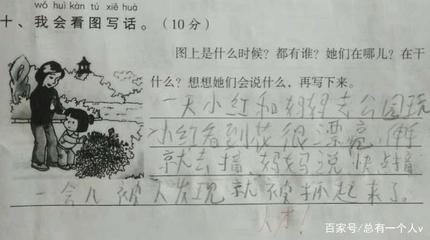 wǒ huì kàn tú xiě huà
十、我会看图写话。(10分)
图上是什么时候?都有谁?她们在哪儿?在干
什么?想想她们会说什么,再写下来。
一天小红和妈妈去公园玩
小红看到花很漂亮,
就去摘,妈妈说快摘
一会儿被人发现就被抓起来了。
人才!
百家号/总有一个人v